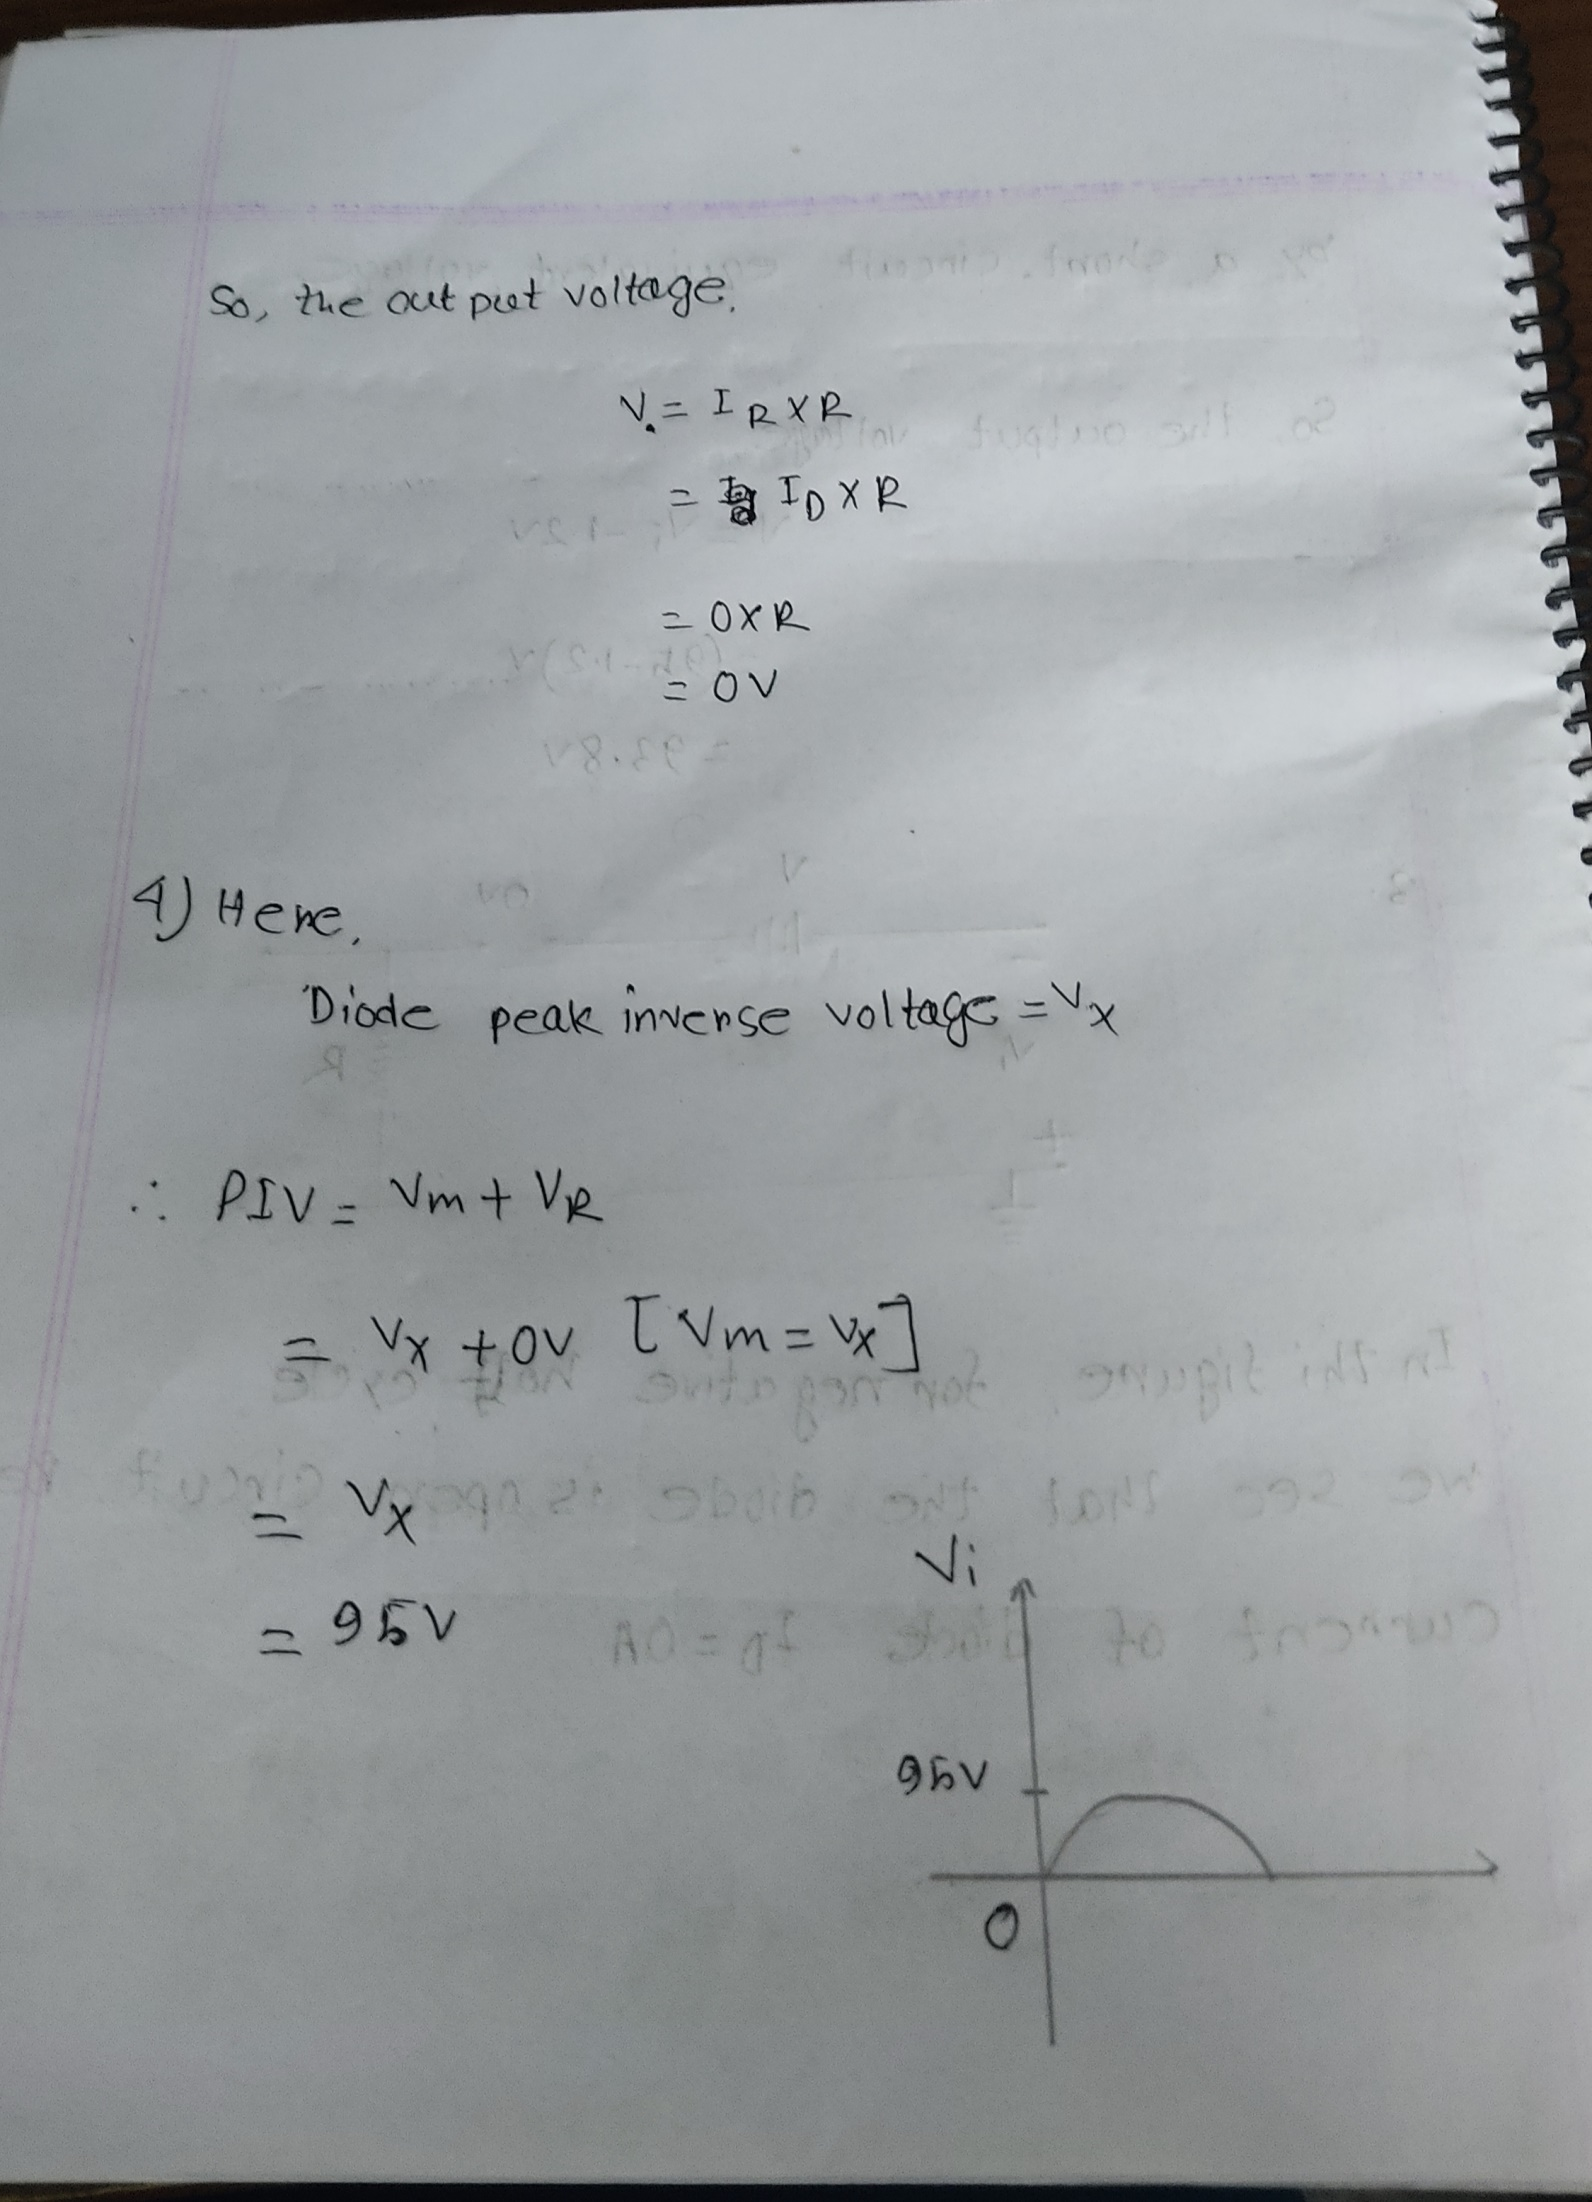 So, the output voltage,
V. = I_R X R
= I_D X R
= 0 X R
= 0V
4) Here,
Diode peak inverse voltage = Vx
∴ PIV = Vm + V_R
= Vx + 0V [Vm = Vx]
= Vx
= 95V
Vi
95V
0